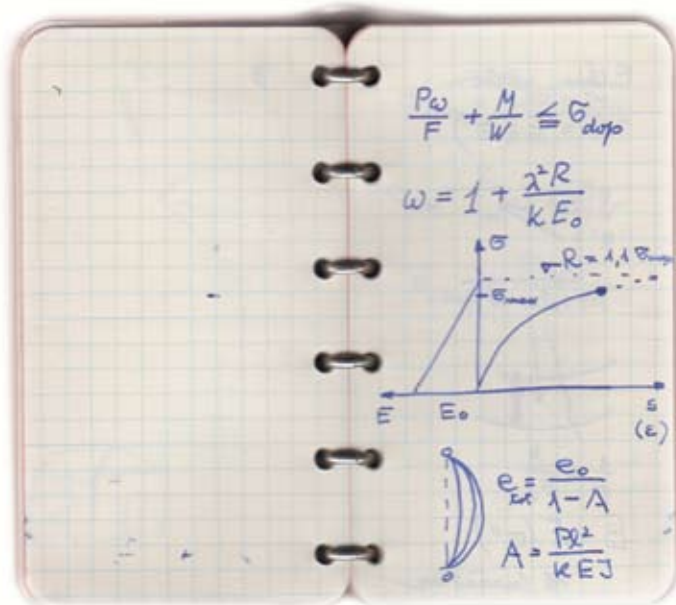 Pω/F + M/W ≦ σ_dop
ω = 1 + λ²R/KE₀
σ
R = 1,1 σ_max
σ_max
E E₀ s
(ε)
e = e₀/1-A
A = Pl²/KEJ